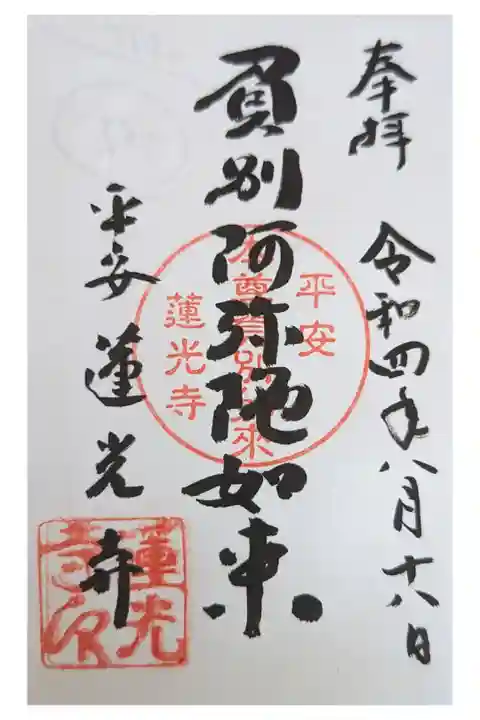 奉拝
令和四年八月十八日
負別阿弥陀如来
平安
本尊負別如來
蓮光寺
平安 蓮光寺
蓮光寺印